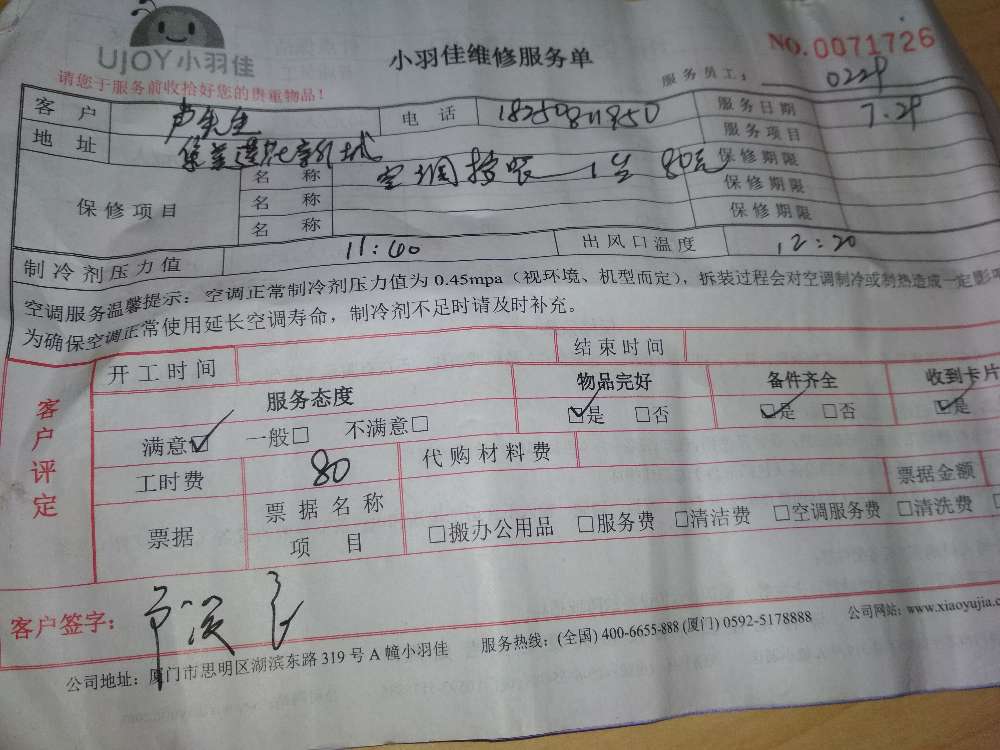 UJOY小羽佳
小羽佳维修服务单
NO.0071726
请您于服务前收拾好您的贵重物品!
服务员工: 0229
客户 卢先生 电话 18250821850 服务日期 7.29
地址 集美 新城 服务项目
保修项目 名称 空调按装 1台 80元 保修期限
名称 保修期限
名称 保修期限
制冷剂压力值 11:40 出风口温度 12:20
空调服务温馨提示: 空调正常制冷剂压力值为 0.45mpa (视环境、机型而定), 拆装过程会对空调制冷或制热造成一定影响
为确保空调正常使用延长空调寿命, 制冷剂不足时请及时补充。
客户评定
开工时间 结束时间
服务态度 物品完好 备件齐全 收到卡片
满意☑ 一般□ 不满意□ ☑是 □否 ☑是 □否 ☑是
工时费 80 代购材料费
票据 票据名称 票据金额
项目 □搬办公用品 □服务费 □清洁费 □空调服务费 □清洗费
客户签字:
公司地址: 厦门市思明区湖滨东路 319 号 A 幢小羽佳 服务热线: (全国) 400-6655-888 (厦门) 0592-5178888 公司网站: www.xiaoyujia.c